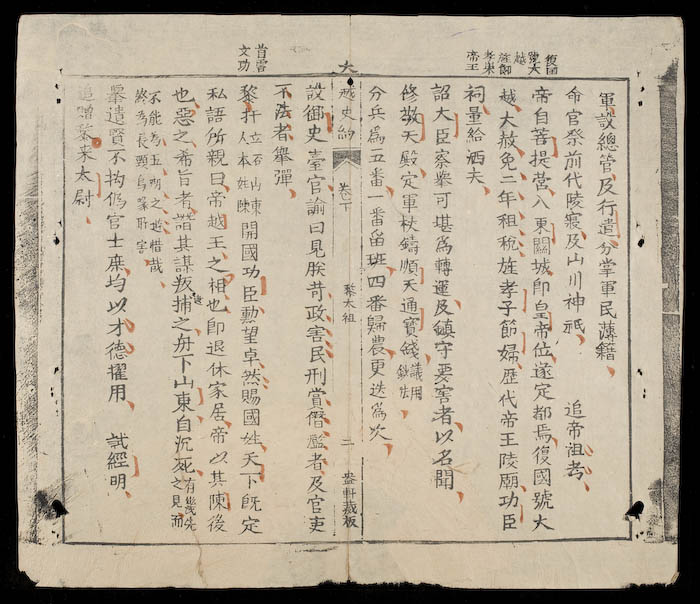 復國
號大
越
旌節
孝東
帝王
軍設總管及行遣分掌軍民薄籍
命官祭前代陵寢及山川神祇 追帝祖考
帝自菩提營入東關城即皇帝位遂定都焉復國號大
越大赦免二年租稅旌孝子節婦歷代帝王陵廟功臣
祠量給洒夫
詔大臣察舉可堪爲轉運及鎮守要害者以名聞
修敬天殿定軍杖鑄順天通寶錢議用鈔法
分兵爲五番一番留班四番歸農更迭爲次
大
越史約
卷下
黎太祖
二
盎軒藏板
首雷
文功
設御史臺官諭曰見朕苛政害民刑賞僭濫者及官吏
不法者舉彈
黎扞立石山東人本姓陳開國功臣勳望卓然賜國姓天下旣定
私語所親曰帝越王之相也即退休家居帝以其陳後
也惡之希旨者譖其謀叛捕之舟下山東自沉死有幾先之見而
不能為五湖之遊惜哉
終為長頸烏喙所害
舉遺賢不拘仍官士庶均以才德擢用 試經明
追贈黎來太尉